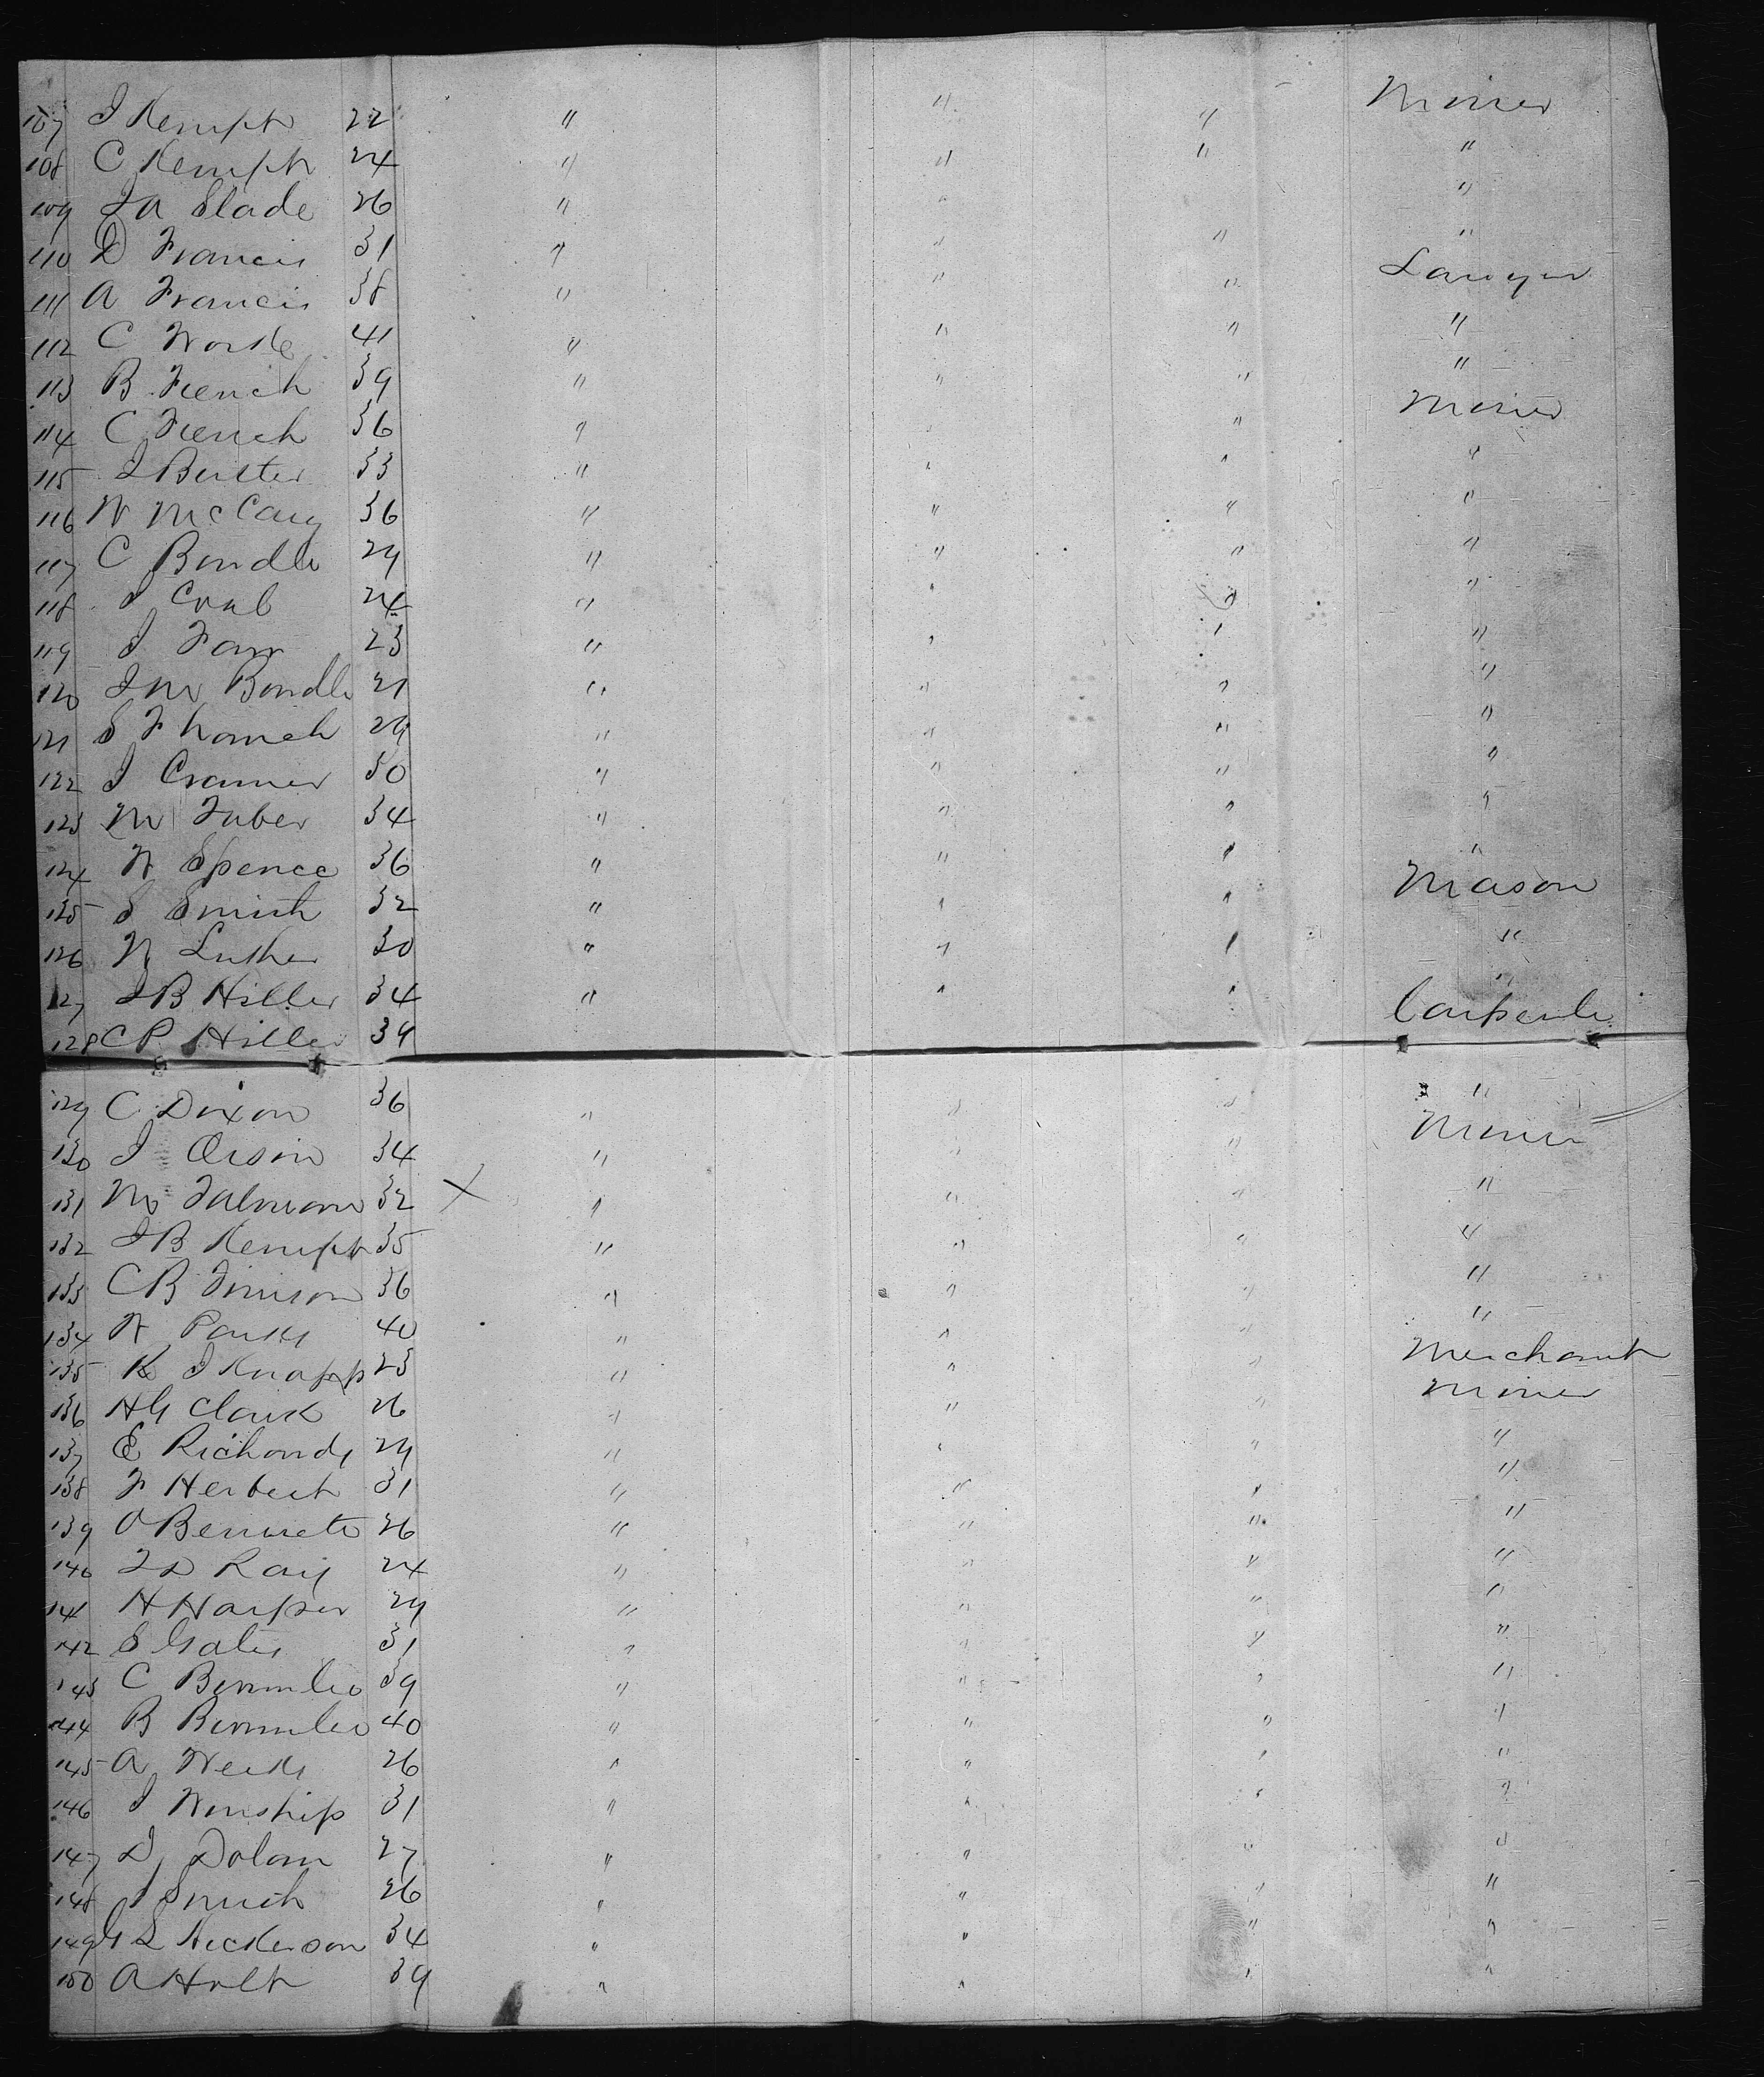 107 J Kempt 22 " " " Miner
108 C Kempt 24 " " " "
109 J A Slade 26 " " "
110 D Francis 31 " " " "
111 A Francis 38 " " " Lawyer
112 C Worke 41 " " " "
113 B French 39 " " " "
114 C French 36 " " " Miner
115 J Buster 33 " " " "
116 W McCarg 36 " " " "
117 C Bondle 29 " " " "
118 J Crab 24 " " " "
119 J Farr 23 " " " "
120 J M Bondle 21 " " " "
121 S F 29 " " " "
122 J Cramer 30 " " " "
123 M Faber 34 " " " "
124 W Spence 36 " " " "
125 S Smith 32 " " " Mason
126 W Luther 30 " " " "
127 J B Hiller 34 " " " "
128 C P Hiller 39 Carpenter
129 C Dixon 36 " " " "
130 J Orsin 34 " " " Miner
131 M 32 X " " " "
132 J B Kempt 35 " " " "
133 C B 36 " " " "
134 W Parks 40 " " " "
135 K J Knapp 23 " " " Merchant
136 H G Clark 26 " " " Miner
137 E Richards 29 " " " "
138 F Herbert 31 " " " "
139 O Bennett 26 " " " "
140 Ray 24 " " " "
141 H Harper 29 " " " "
142 S Gates 31 " " " "
143 C 39 " " " "
144 B 40 " " " "
145 A Weeks 26 " " " "
146 J Winship 31 " " " "
147 D Dolan 27 " " " "
148 J Smith 26 " " " "
149 G L Heckerson 34 " " " "
150 A Holt 39 " " " "